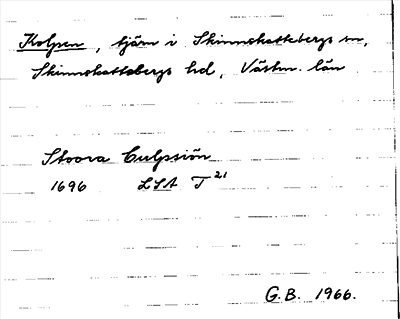 Kolpen, tjärn i Skinnskattebergs sn,
Skinnskattebergs hd, Västm. län
Stoora Culpsiön
1696 LSA T 21
G.B. 1966.